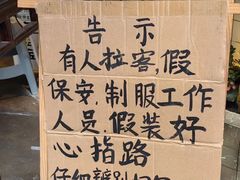 告示
有人拉客,假
保安.制服工作
人员.假装好
心指路
仔细辨别